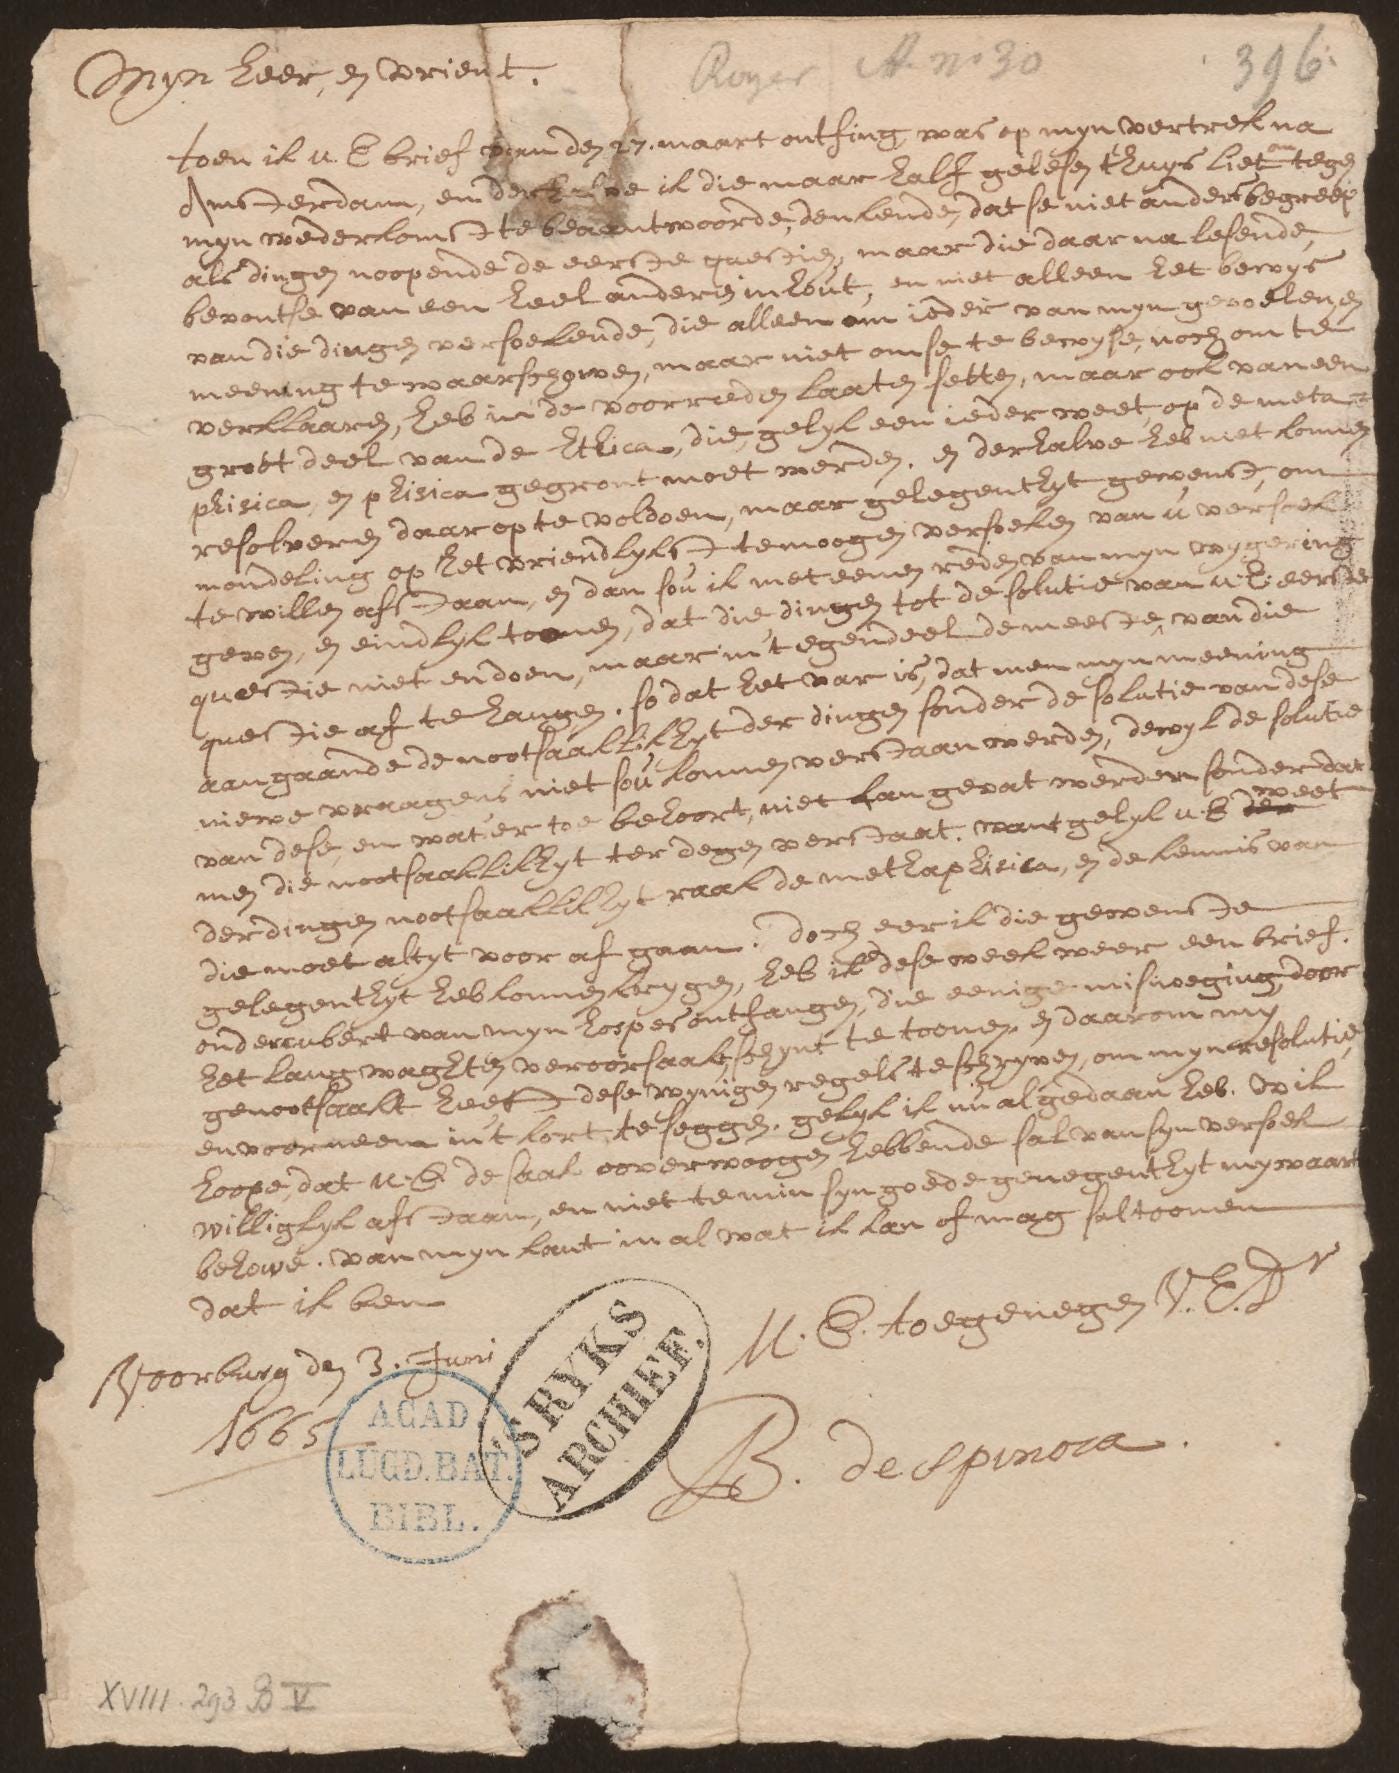 Royer A. no 30 396.
Myn heer, en vrient.
toen ik u.E brief van den 27. maart ontfing, was op myn vertrek na
Amsterdam, en derhalve ik die maar half gelesen thuys liet om tegen
myn wederkomst te beäantwoorde, denkende, dat se niet anders begreep,
als dingen noopende de eerste questien, maar die daar na lesende,
bevont se van een heel anderen inhout, en niet alleen het bewys
van die dingen versoekende, die alleen om ieder van myn gevoelen en
meening te waarschowen, maar niet om se te bewyse, noch om te
verklaaren, heb in de voorreden laaten setten, maar ook van een
groot deel van de Ethica, die, gelyk een ieder weet, op de meta
phisica, en phisica gegront moet werden. en derhalve heb niet konnen
resolveren daar op te voldoen, maar gelegenthyt gewenst, om
mondeling op het vriendlykst te moogen versoeken van u versoek
te willen afstaan, en dan sou ik met eenen reden van myn wygering
geven, en eindlyk toonen, dat die dingen tot de solutie van u.E. eerste
questie niet en doen, maar in't tegendeel de meeste, van die
questie af te hangen. so dat het var is, dat men myn meening
aangaande de nootsaaklikhyt der dingen sonder de solutie van dese
niewe vraagens niet sou konnen verstaan werden, dewyl de solutie
van dese, en wat'er toe behoort, niet kan gevat werden sonder dat
men die nootsaaklikhyt ter degen verstaat. want gelyk u.E weet
der dingen nootsaaklikhyt raak de methaphisica, en de kennis van
die moet altyt voor af gaan. doch eer ik die gewenste
gelegenthyt heb konnen krygen, heb ik dese week weer een brief
onder cubert van myn hospes ontfangen, die eenige misnoeging door
het lang waghten veroorsaakt, schynt te toonen, en daarom my
genootsaakt heeft dese wynigen regels te schryven, om myn resolutie,
en voorneem in't kort te seggen. gelyk ik nu al gedaan heb. Wil
hoope, dat u.E. de saak ooverwoogen hebbende sal van syn versoek
williglyk afstaan, en niet te min syn goede genegenthyt mywaart
behowe. van myn kant in al wat ik kan of mag sal toonen
dat ik ben
U.E. toegenegen V.E.Dr
Voorburg den 3. Juni
1665
B. despinoza.
'SRYKS
ARCHIEF.
ACAD.
LUGD.BAT.
BIBL.
XVIII. 293 B V